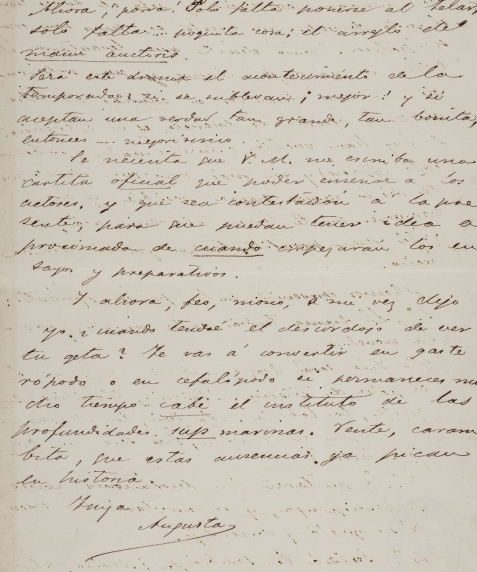 Ahora, pona! Solo falta ponerse al telar,
solo falta... poquita cosa; el arreglo de
manu auctoris.
Será este drama el acontecimiento de la
temporada: si se sublevan ¡mejor! y si
aceptan una verdad tan grande, tan bonita,
entonces... mejorísimo.
Se necesita que V. M. me escriba una
cartita oficial que poder enseñar a los
actores, y que sea contestación a la pre
sente, para que puedan tener idea a
proximada de cuando empezarán los en
sayos y preparativos.
Y ahora, feo, mono, á mi vez dejo
yo. ¿Cuando tendré el descordojo de ver
tu geta? Te vas á convertir en gaste
rópodo o en cefalópodo si permaneces mu
cho tiempo cabe el instituto de las
profundidades sup marinas. Vente, caram
bita, que estas ausencias ya pican
en historia.
Tuya
Augusta